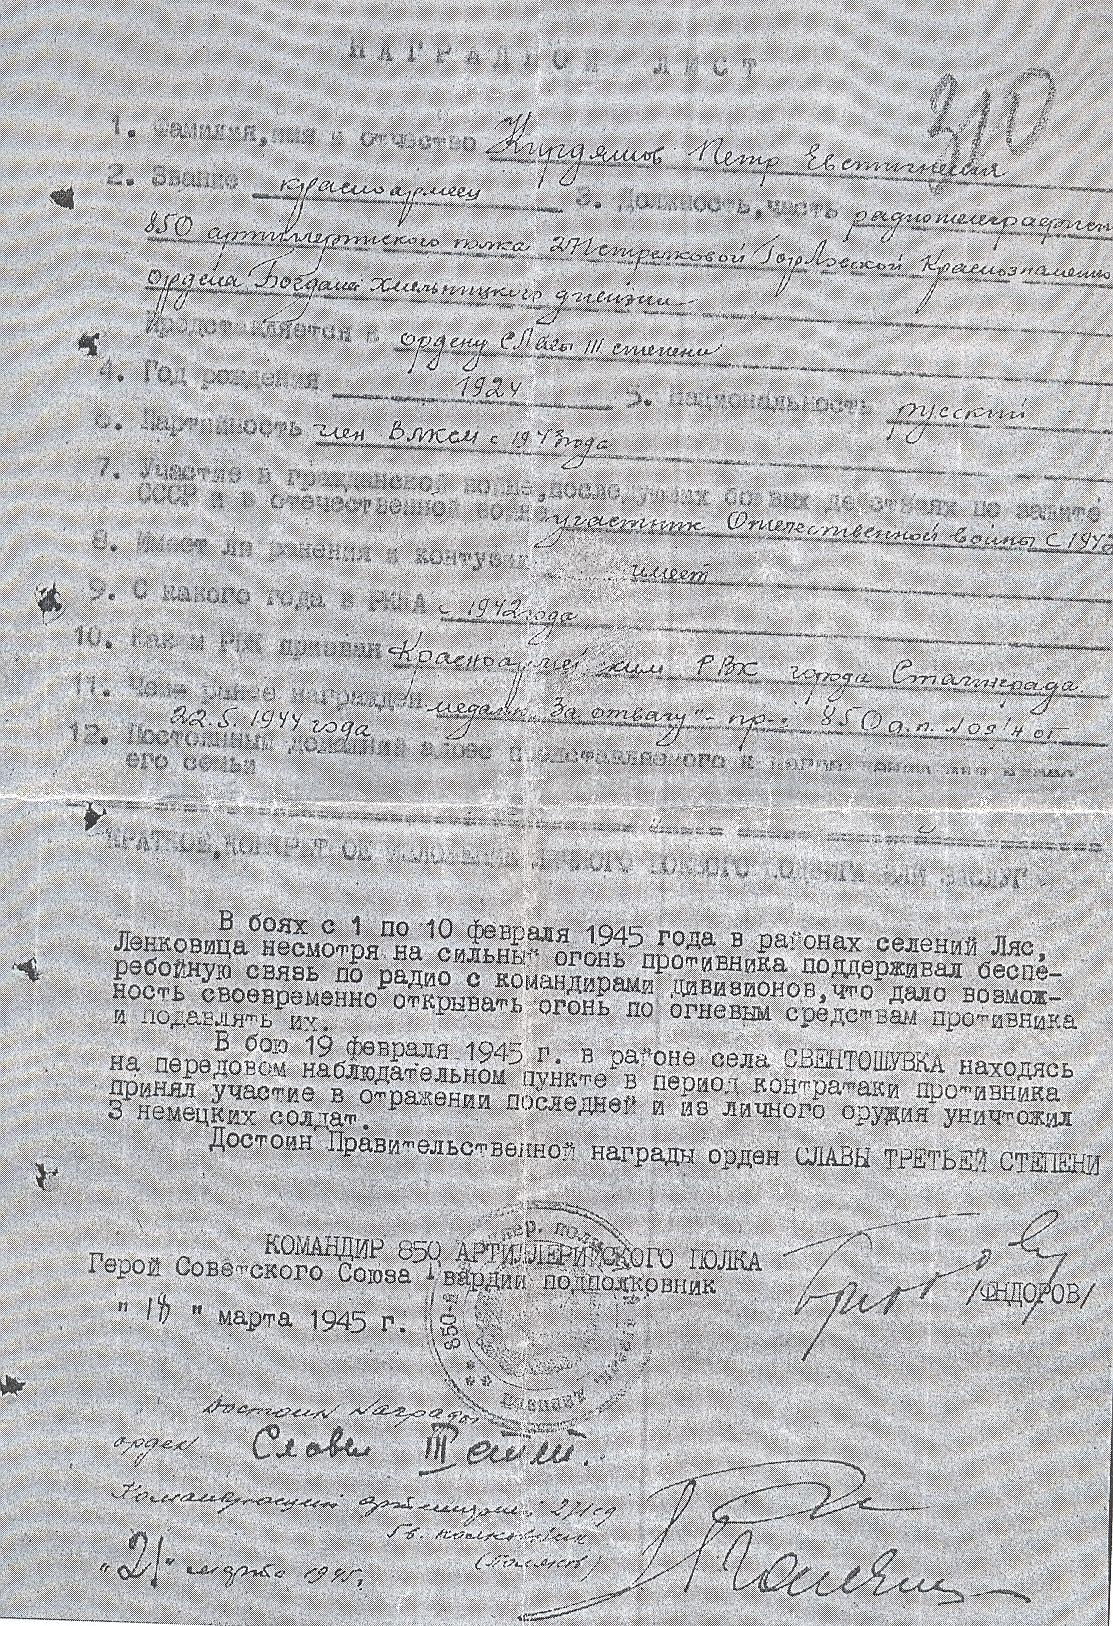 НАГРАДНОЙ ЛИСТ
310
1. Фамилия, имя и отчество Кирдяшов Петр
2. Звание красноармеец 3. Должность, часть радиотелеграфист
850 артиллерийского полка 271 стрелковой Горловской Краснознаменно
ордена Богдана Хмельницкого дивизии
Представляется к ордену Славы III степени
4. Год рождения 1924 5. Национальность русский
6. Партийность член ВЛКСМ с 1943 года
7. Участие в гражданской войне, последующих боевых действиях по защите
СССР и в отечественной войне участник Отечественной войны с 1942
8. Имеет ли ранения и контузии имеет
9. С какого года в РККА с 1942 года
10. Каким РВК призван Красноармейским РВК города Сталинграда
11. Чем ранее награжден медаль "За отвагу" - пр-. 850 а.п. № 09/н от
22.5.1944 года
12. Постоянный домашний адрес представляемого к
его семьи
КРАТКОЕ, КОНКРЕТНОЕ ИЗЛОЖЕНИЕ ЛИЧНОГО БОЕВОГО ПОДВИГА ИЛИ ЗАСЛУГ
В боях с 1 по 10 февраля 1945 года в районах селений Ляс,
Ленковица несмотря на сильный огонь противника поддерживал беспе-
ребойную связь по радио с командирами дивизионов, что дало возмож-
ность своевременно открывать огонь по огневым средствам противника
и подавлять их.
В бою 19 февраля 1945 г. в районе села СВЕНТОШУВКА находясь
на передовом наблюдательном пункте в период контратаки противника
принял участие в отражении последней и из личного оружия уничтожил
3 немецких солдат.
Достоин Правительственной награды орден СЛАВЫ ТРЕТЬЕЙ СТЕПЕНИ
КОМАНДИР 850 АРТИЛЛЕРИЙСКОГО ПОЛКА
Герой Советского Союза Гвардии подполковник
/ФЕДОРОВ/
"18" марта 1945 г.
850-й
Достоин награды
орден Славы III степ.
Командующий артиллерией 271 сд
Гв. полковник
"21" марта 1945г.